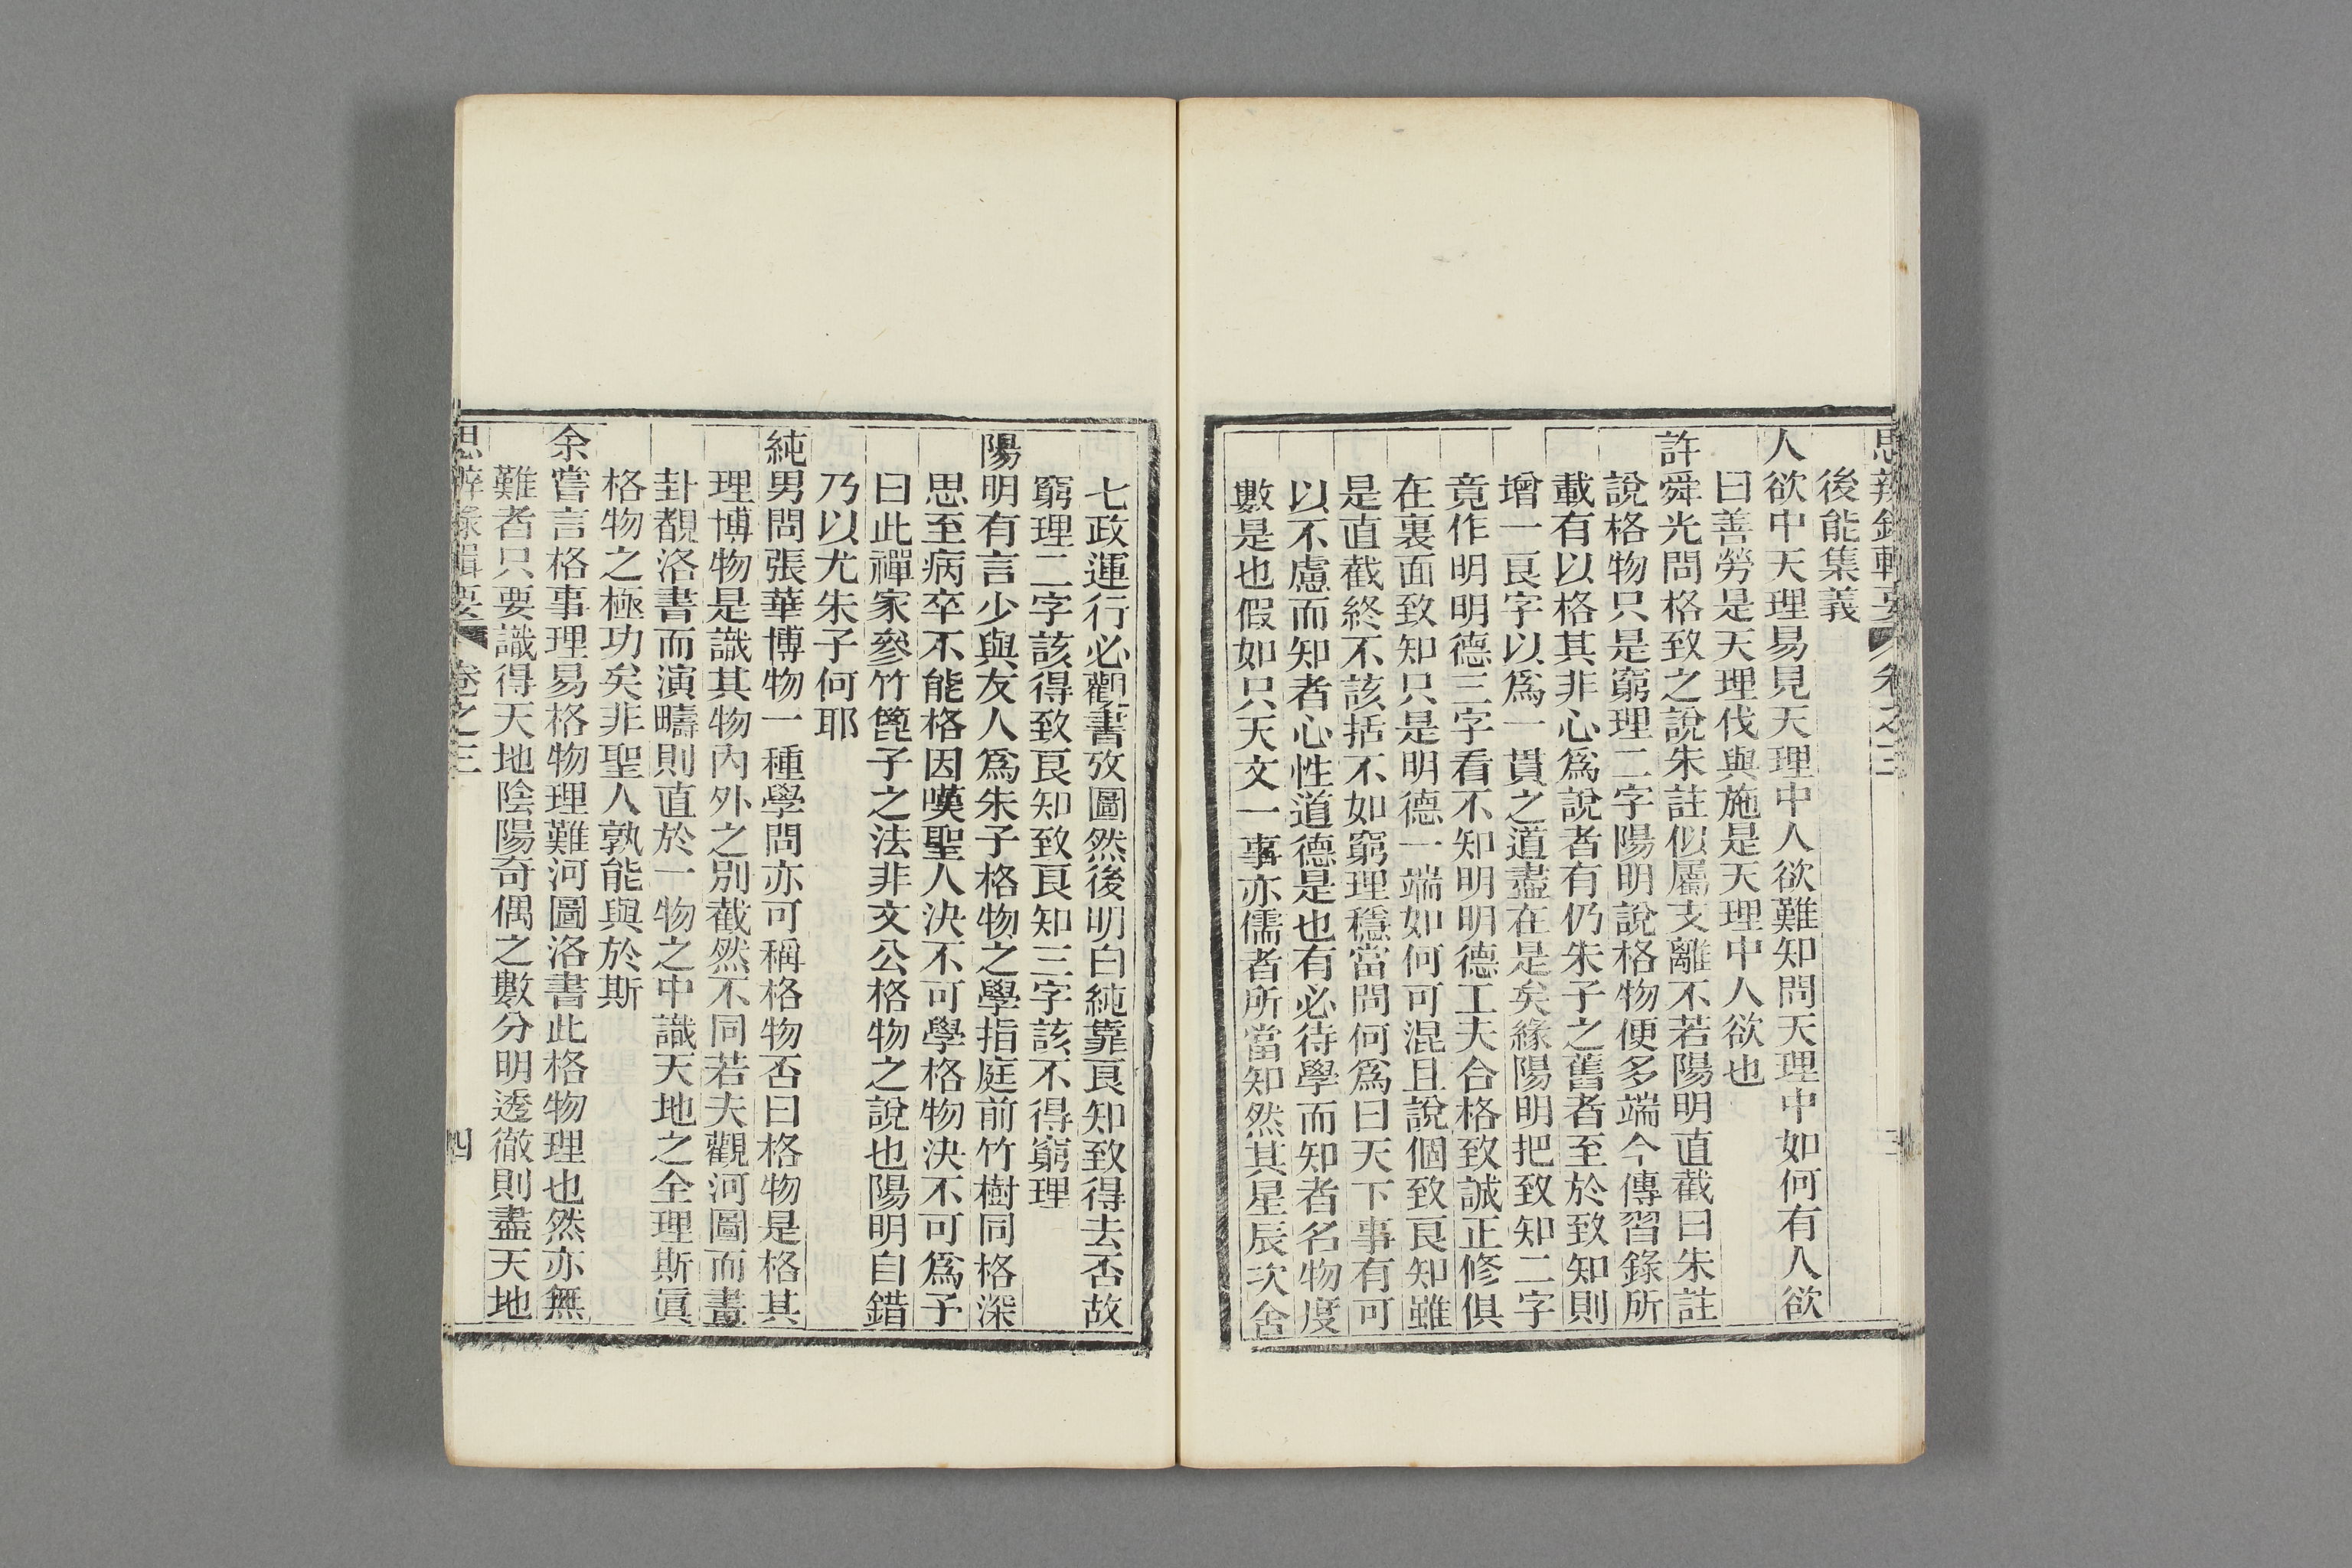 思辨錄輯要 卷之三 三
後能集義
人欲中天理易見天理中人欲難知問天理中如何有人欲
曰善勞是天理伐與施是天理中人欲也
許舜光問格致之說朱註似屬支離不若陽明直截曰朱註
說格物只是窮理二字陽明說格物便多端今傳習錄所
載有以格其非心爲說者有仍朱子之舊者至於致知則
增一良字以爲一貫之道盡在是矣緣陽明把致知二字
竟作明明德三字看不知明明德工夫合格致誠正修俱
在裏面致知只是明德一端如何可混且說個致良知雖
是直截終不該括不如窮理穩當問何爲曰天下事有可
以不慮而知者心性道德是也有必待學而知者名物度
數是也假如只天文一事亦儒者所當知然其星辰次舍
七政運行必觀書攷圖然後明白純靠良知致得去否故
窮理二字該得致良知致良知三字該不得窮理
陽明有言少與友人爲朱子格物之學指庭前竹樹同格深
思至病卒不能格因嘆聖人決不可學格物決不可爲予
曰此禪家參竹篦子之法非文公格物之說也陽明自錯
乃以尤朱子何耶
純男問張華博物一種學問亦可稱格物否曰格物是格其
理博物是識其物內外之別截然不同若夫觀河圖而畫
卦覩洛書而演疇則直於一物之中識天地之全理斯眞
格物之極功矣非聖人孰能與於斯
余嘗言格事理易格物理難河圖洛書此格物理也然亦無
難者只要識得天地陰陽奇偶之數分明透徹則盡天地
思辨錄輯要 卷之三 四